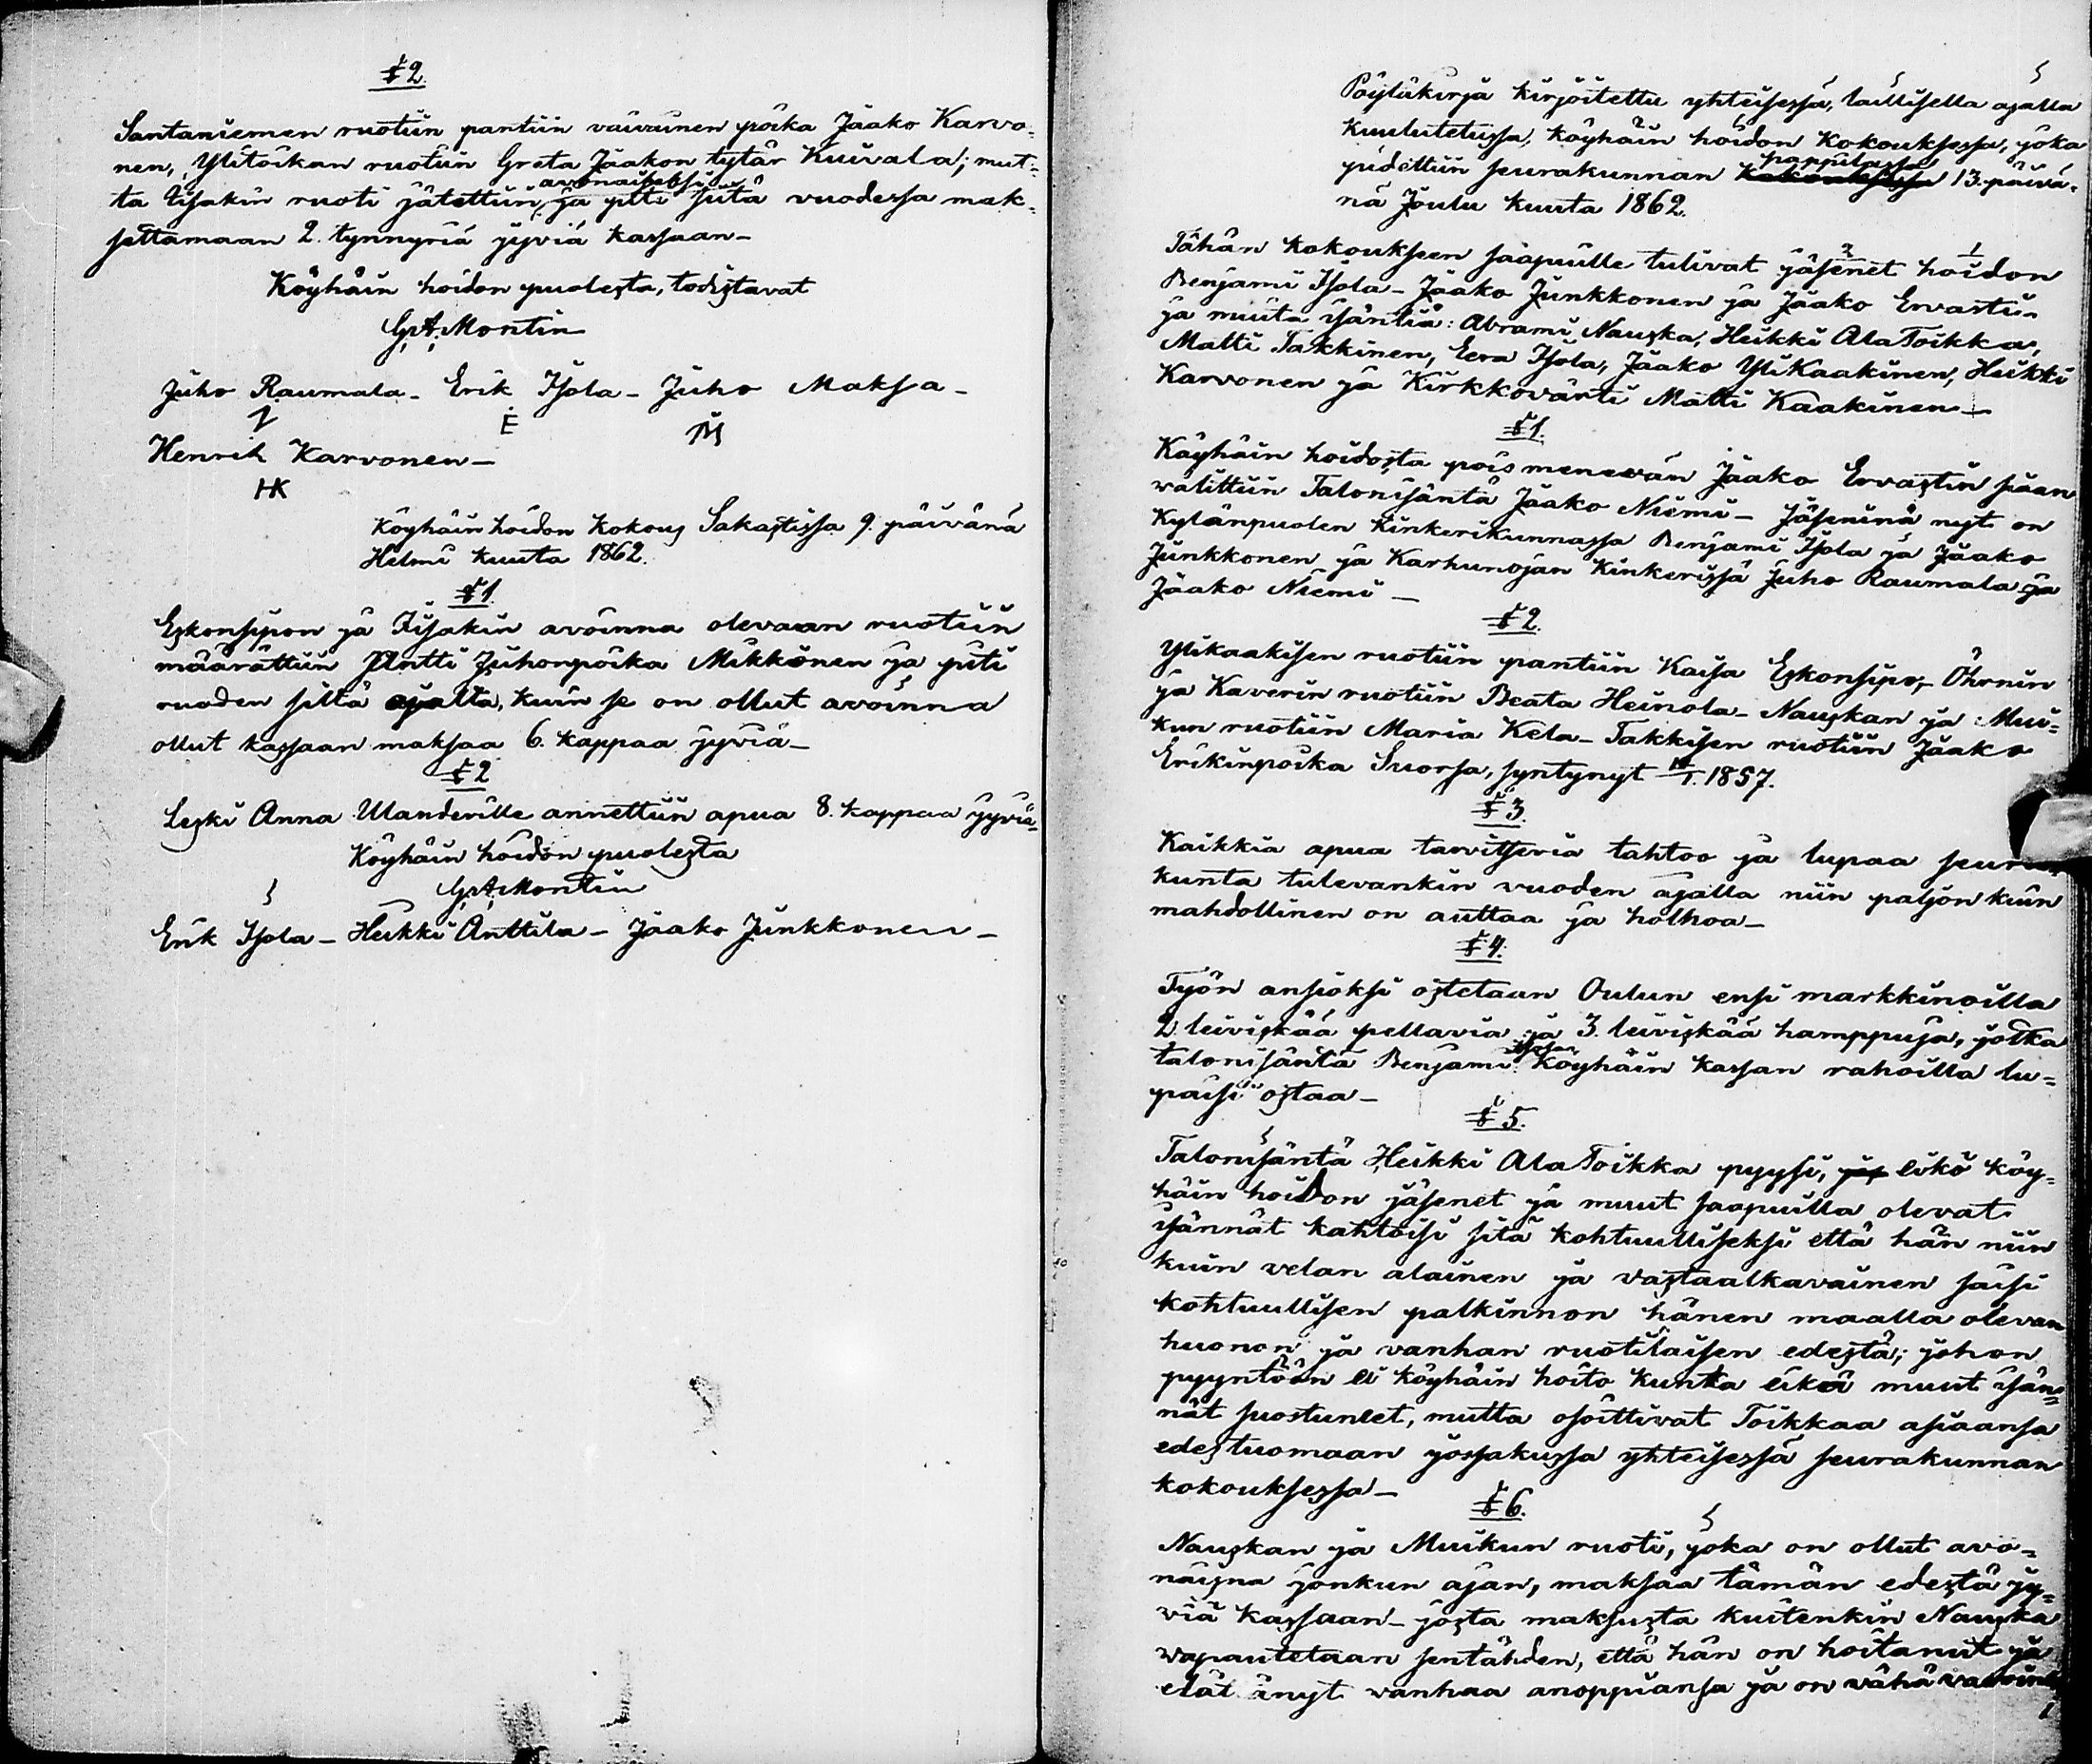 § 2.
Santaniemen ruotiin pantiin vaivainen poika Jaako Karvo=
nen, Ylitoikan ruotiin Greta Jaakon tytär Kuivala; mut=
ta Iisakin ruoti jätettiin avonaiseksi ja piti siitä vuodessa mak=
settamaan 2. tynnyriä jyviä kassaan_
Köyhäin hoidon puolesta, todistavat
G. A. Montin
Juho Raumala _ Erik Isola _ Juho Maksa _
E M
Henrik Karvonen _
HK
Köyhäin hoidon kokous Sakastissa 9. päivänä
Helmi kuuta 1862.
§ 1.
Eskonsipon ja Iisakin avoinna olevaan ruotiin
määrättiin Antti Juhonpoika Mikkonen ja piti
ruoden siltä ajalta, kuin se on ollut avoinna
ollut kassaan maksaa 6. kappaa jyviä_
§ 2
Leski Anna Ulanderille annettiin apua 8. kappaa jyviä_
Köyhäin hoidon puolesta
G. A. Montin
Erik Isola _ Heikki Anttila _ Jaako Junkkonen _
Pöytäkirja kirjoitettu yhteisessä, laillisella ajalla
kuulutetussa, köyhäin hoidon kokouksessa, joka
pidettiin seurakunnan pappilassa 13. päivä=
nä Joulu kuuta 1862.
Tähän kokoukseen saapuille tulivat jäsenet hoidon
Benjami Isola _ Jaako Junkkonen ja Jaako Ervasti _
ja muita isäntiä: Abrami Nauska, Heikki AlaToikka,
Matti Takkinen, Eera Isola, Jaako YliKaakinen, Heikki
Karvonen ja Kirkkovärti Matti Kaakinen _
§ 1.
Köyhäin hoidosta pois menevän Jaako Ervastin siaan
valittiin Talonisäntä Jaako Niemi _ Jäseninä nyt on
Kylänpuolen Kinkerikunnassa Benjami Isola ja Jaako
Junkkonen ja Karhunojan Kinkerissä Juho Raumala ja
Jaako Niemi _
§ 2.
Ylikaakisen ruotiin pantiin Kaisa Eskonsipo, _ Öhrnin
ja Kaverin ruotiin Beata Heinola _ Nauskan ja Mui=
kun ruotiin Maria Kela _ Takkisen ruotiin Jaako
Erikinpoika Suorsa, syntynyt 1857.
§ 3.
Kaikkia apua tarvitsevia tahtoo ja lupaa seura
kunta tulevankin vuoden ajalla niin paljon kuin
mahdollinen on auttaa ja holhoa _
§ 4.
Työn ansioksi ostetaan Oulun ensi markkinoilla
2. leiviskää pellavia ja 3. leiviskää hamppuja, jotka
talonisäntä Benjami Isola Köyhäin kassan rahoilla lu=
paisi ostaa _
§ 5.
Talonisäntä Heikki AlaToikka pyysi, jos eikö köy=
häin hoidon jäsenet ja muut saapuilla olevat
isännät kahtoisi sitä kohtuulliseksi että hän niin
kuin velan alainen ja vastaalkavainen saisi
kohtuullisen palkinnon hänen maalla olevan
huonon ja vanhan ruotilaisen edestä; johon
pyyntöön ei köyhäin hoito kunta eikä muut isän=
nät suostuneet, mutta osoittivat Toikkaa asiaansa
edestuomaan jossakussa yhteisessä seurakunnan
kokouksessa _
§ 6.
Nauskan ja Muikun ruoti, joka on ollut avo=
naisna jonkun ajan, maksaa tämän edestä jy=
viä kassaan _ josta maksusta kuitenkin Nauska
vapautetaan sentähden, että hän on hoitanut ja
elättänyt vanhaa anoppiansa ja on vähä